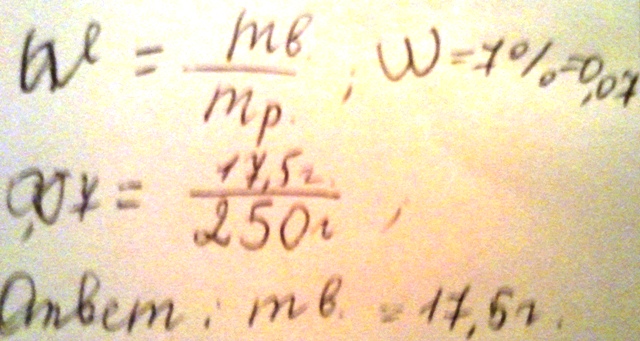 W = mв. / mр. ; W = 7% = 0,07
0,07 = 17,5г. / 250г ,
Ответ: mв. = 17,5г.